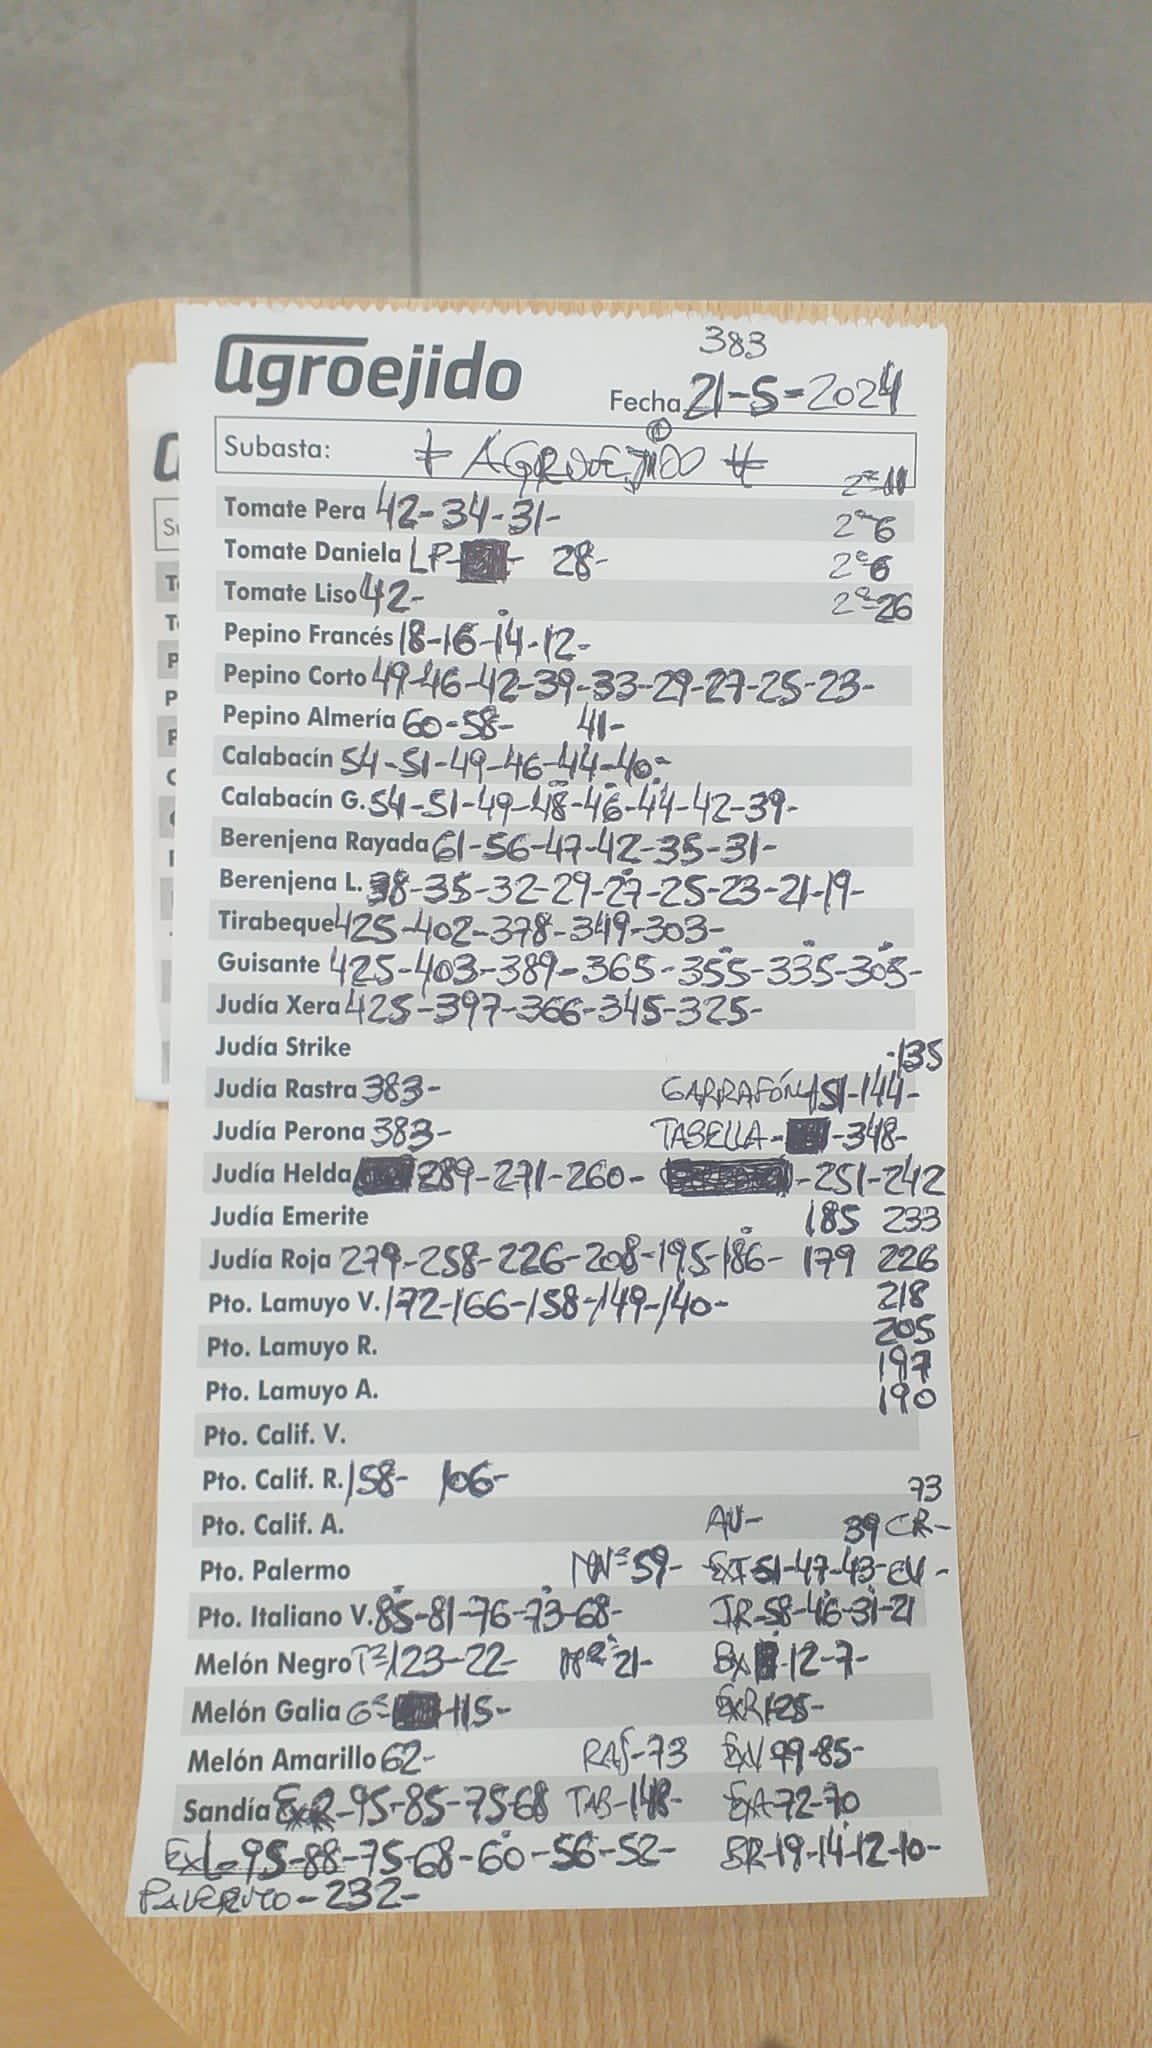 agroejido
383
Fecha 21-5-2024
Subasta: # AGROEJIDO #
2ª 11
Tomate Pera 42-34-31- 2ª 6
Tomate Daniela LP- 28- 2ª 6
Tomate Liso 42- 2ª 26
Pepino Francés 18-16-14-12-
Pepino Corto 49-46-42-39-33-29-27-25-23-
Pepino Almería 60-58- 41-
Calabacín 54-51-49-46-44-40-
Calabacín G. 54-51-49-48-46-44-42-39-
Berenjena Rayada 61-56-47-42-35-31-
Berenjena L. 38-35-32-29-27-25-23-21-19-
Tirabeque 425-402-378-349-303-
Guisante 425-403-389-365-355-335-305-
Judía Xera 425-397-366-345-325-
Judía Strike -135
Judía Rastra 383- GARRAFÓN 151-144-
Judía Perona 383- TABELLA- -348-
Judía Helda 289-271-260- -251-242
Judía Emerite 185 233
Judía Roja 279-258-226-208-195-186- 179 226
Pto. Lamuyo V. 172-166-158-149-140- 218
205
Pto. Lamuyo R. 197
Pto. Lamuyo A. 190
Pto. Calif. V.
Pto. Calif. R. 158- 106- 73
Pto. Calif. A. AV- 39 CR-
Pto. Palermo 59- EXT 51-47-43-
Pto. Italiano V. 85-81-76-73-68- JR-58-46-31-21
Melón Negro 1ª 123-22- 21- BX -12-7-
Melón Galia Gª -115- EXR 125-
Melón Amarillo 62- RAF-73 EXV 99-85-
Sandía EXR-95-85-75-68 TAB-148- EXA-72-70
EXL-95-88-75-68-60-56-52- BR-19-14-12-10-
PALERMO-232-